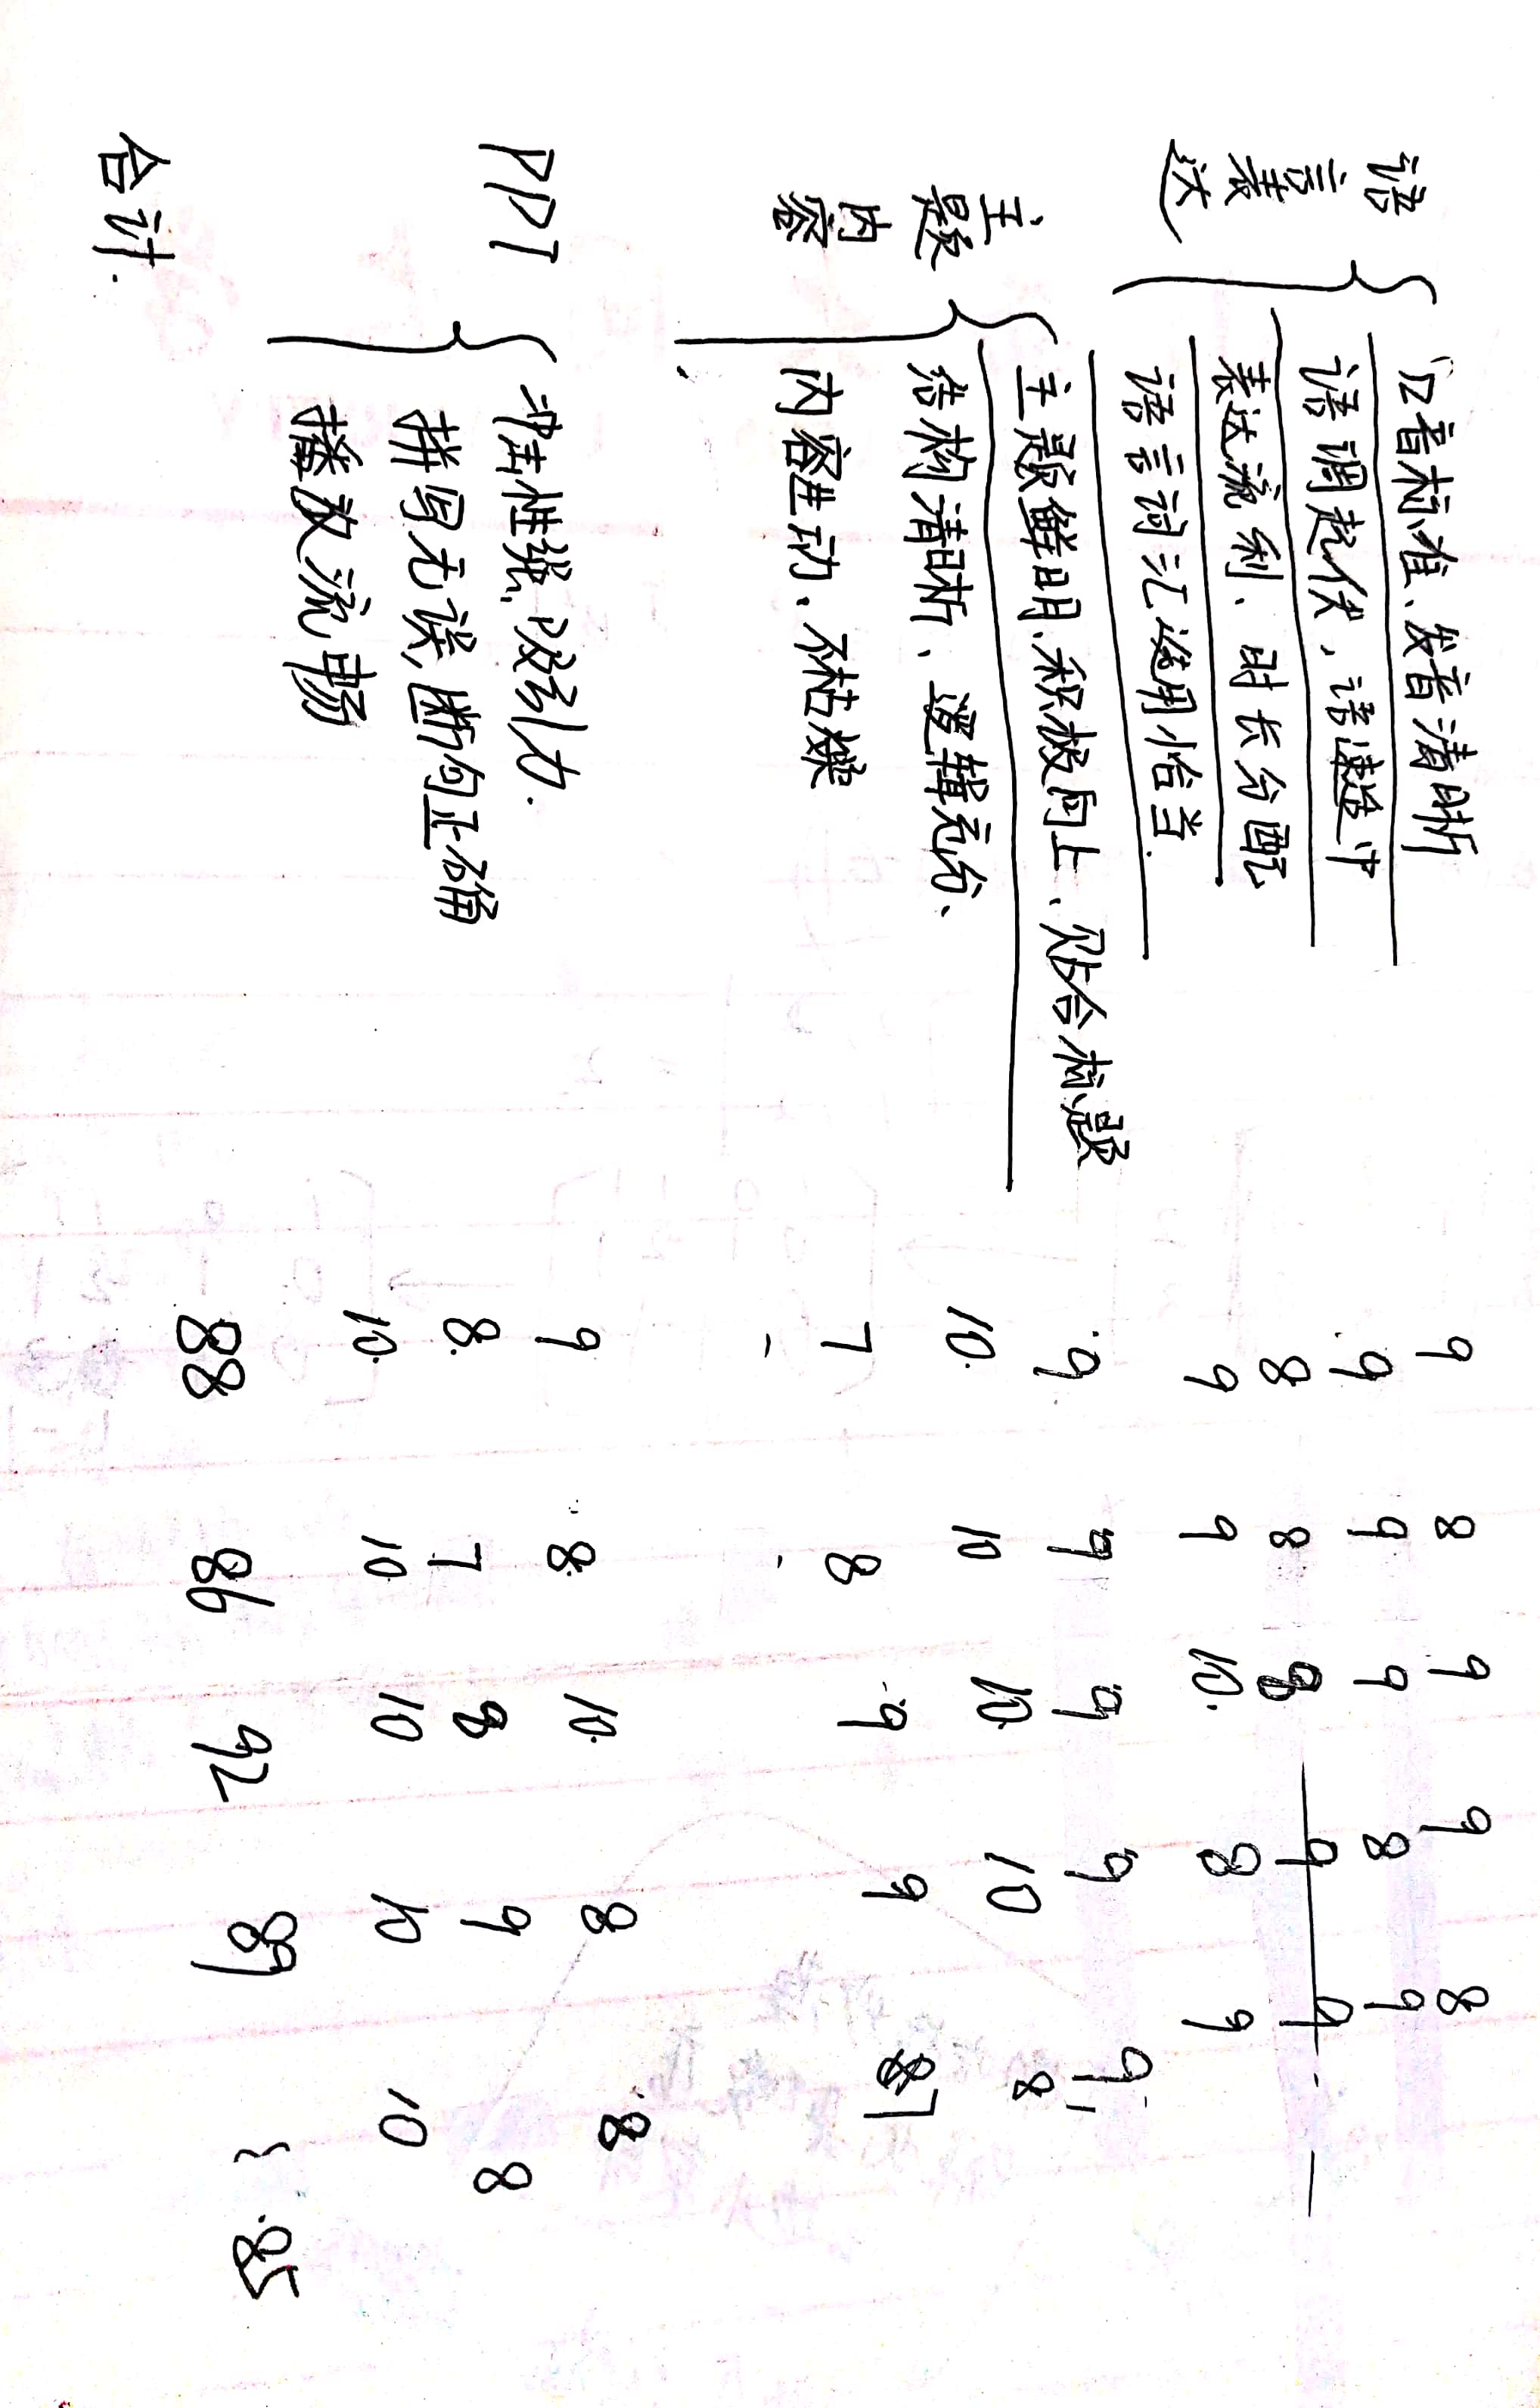 语言表达
口音标准、发音清晰 9 8 9 9 8
语调起伏,语速适中 9 9 9 8 9
表达流利、时长分配 8 8 8 9 9
语言词汇选用恰当. 9 9 10. 8 9
主题内容
主题鲜明、积极向上、贴合标题 9 9 9 9 9
结构清晰、逻辑充分、 10. 10 10 10 8
内容生动、不枯燥 7 8 9 9 7
PPT
性强、吸引力. 9 8 10. 8 8
拼写无误、断句正确 8 7 8 9 8
播放流畅 10 10 10 10 10
合计. 88 86 92 89 85